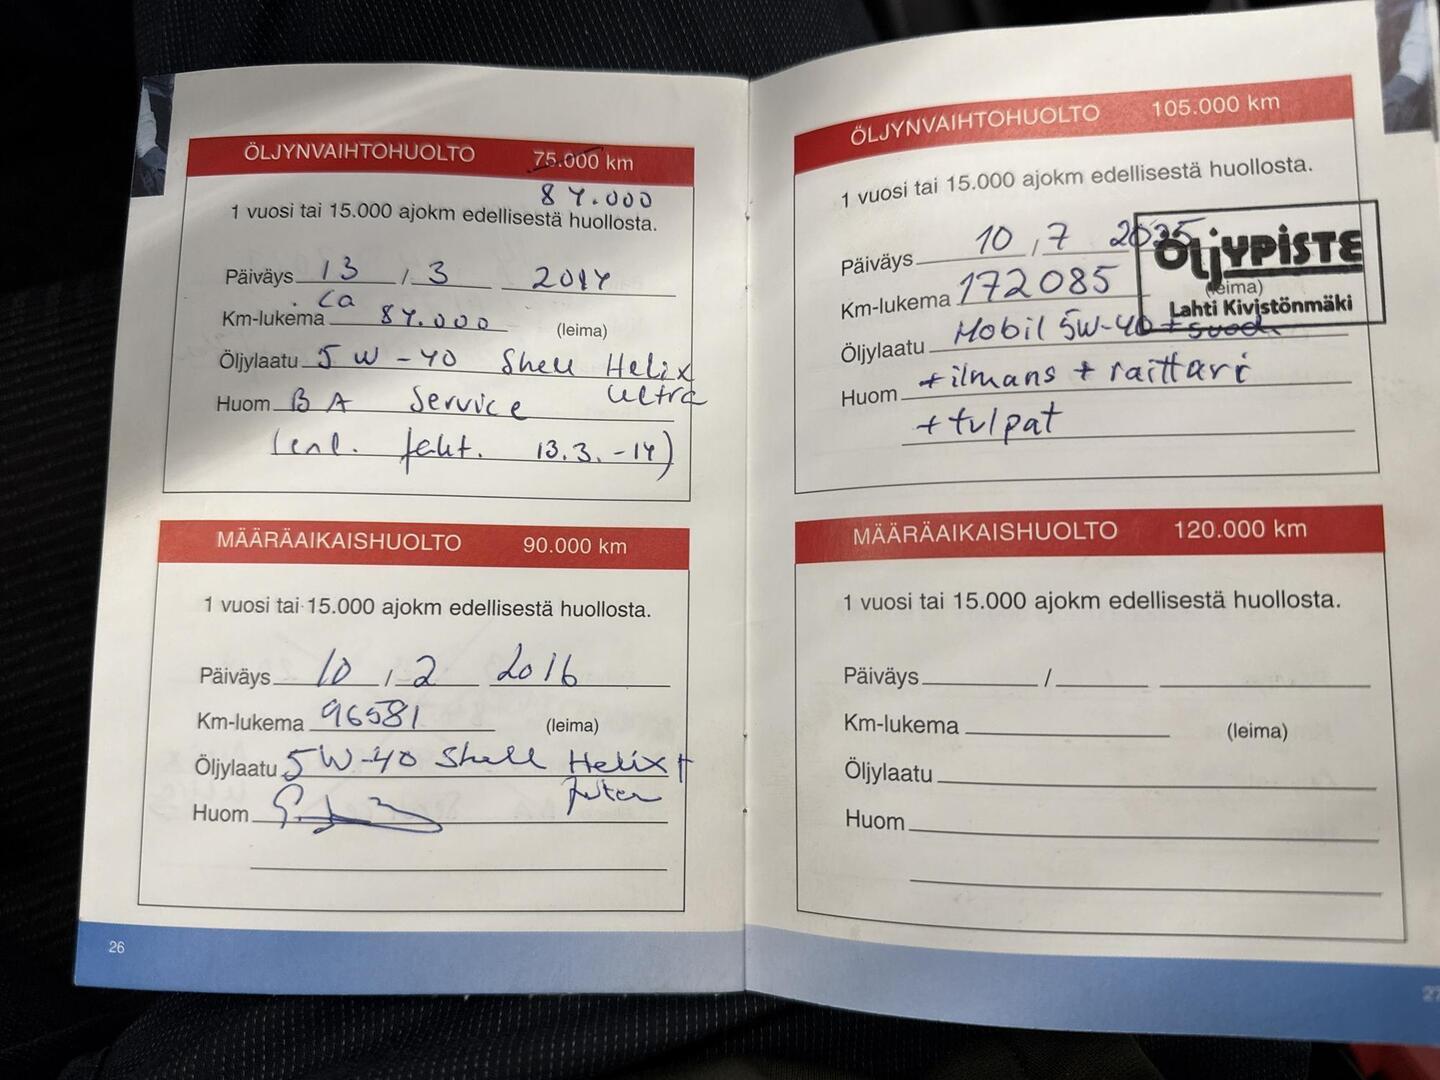 ÖLJYNVAIHTOHUOLTO 75.000 km
84.000
1 vuosi tai 15.000 ajokm edellisestä huollosta.
Päiväys 13 / 3 2014
ca
Km-lukema 84.000 (leima)
Öljylaatu 5W-40 Shell Helix
Ultra
Huom BA Service
(enl. fakt. 13.3.-14)
MÄÄRÄAIKAISHUOLTO 90.000 km
1 vuosi tai 15.000 ajokm edellisestä huollosta.
Päiväys 10 / 2 2016
Km-lukema 96581 (leima)
Öljylaatu 5W-40 Shell Helix +
Huom
26
ÖLJYNVAIHTOHUOLTO 105.000 km
1 vuosi tai 15.000 ajokm edellisestä huollosta.
Päiväys 10 / 7
ÖljyPISTE
Km-lukema 172085 (leima)
Lahti Kivistönmäki
Öljylaatu Mobil 5W-40 + suod.
Huom + ilmans + raittari
+ tulpat
MÄÄRÄAIKAISHUOLTO 120.000 km
1 vuosi tai 15.000 ajokm edellisestä huollosta.
Päiväys /
Km-lukema (leima)
Öljylaatu
Huom
27